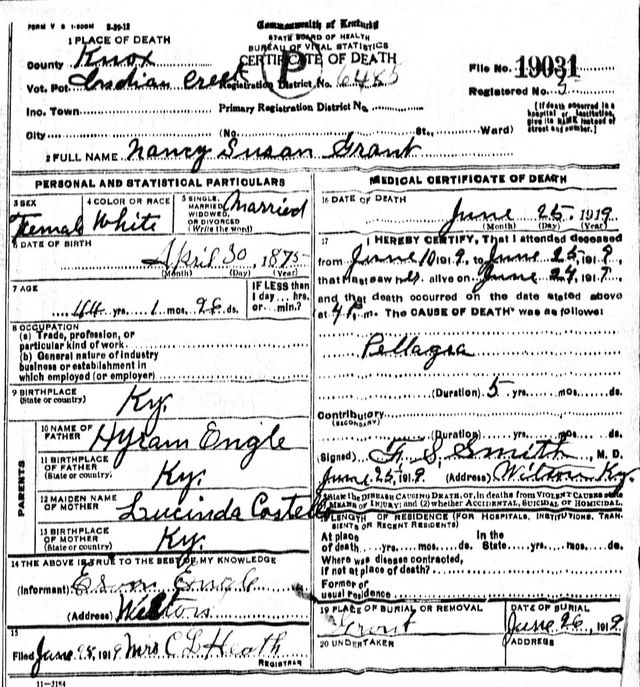 FORM V S 1-500M 8-29-12
Commonwealth of Kentucky
STATE BOARD OF HEALTH
BUREAU OF VITAL STATISTICS
CERTIFICATE OF DEATH
1 PLACE OF DEATH
County Knox
Vot. Pct. Indian Creek Registration District No. 6485
File No. 19031
Registered No. 5
Inc. Town Primary Registration District No.
City (No. St., Ward)
[If death occurred in a hospital or institution, give its NAME instead of street and number.]
2 FULL NAME Nancy Susan Grant
PERSONAL AND STATISTICAL PARTICULARS
3 SEX Female
4 COLOR OR RACE White
5 SINGLE, MARRIED, WIDOWED, OR DIVORCED (Write the word) Married
6 DATE OF BIRTH
April 30, 1875
(Month) (Day) (Year)
7 AGE
44 yrs. 1 mos. 28 ds.
IF LESS than 1 day... hrs. or... min.?
8 OCCUPATION
(a) Trade, profession, or particular kind of work
(b) General nature of industry business or establishment in which employed (or employer)
9 BIRTHPLACE
(State or country) Ky.
PARENTS
10 NAME OF FATHER Hyram Engle
11 BIRTHPLACE OF FATHER (State or country) Ky.
12 MAIDEN NAME OF MOTHER Lucinda
13 BIRTHPLACE OF MOTHER (State or country) Ky.
14 THE ABOVE IS TRUE TO THE BEST OF MY KNOWLEDGE
(Informant) Engle
(Address) Wilton
15
Filed June 25, 1919 Mrs C L Heath
REGISTRAR
11-3184
MEDICAL CERTIFICATE OF DEATH
16 DATE OF DEATH
June 25, 1919
(Month) (Day) (Year)
17 I HEREBY CERTIFY, That I attended deceased
from June 10 1919, to June 25, 1919,
that I last saw her alive on June 24, 1919,
and that death occurred on the date stated above
at m. The CAUSE OF DEATH was as follows:
Pellagra
(Duration) 5 yrs. mos. ds.
Contributory
(SECONDARY)
(Duration) yrs. mos. ds.
(Signed) F. S. Smith, M. D.
June 25, 1919 (Address) Wilton Ky.
State the DISEASE CAUSING DEATH, or, in deaths from VIOLENT CAUSES state
MEANS OF INJURY; and (2) whether ACCIDENTAL, SUICIDAL OR HOMICIDAL.
LENGTH OF RESIDENCE (FOR HOSPITALS, INSTITUTIONS, TRANSIENTS OR RECENT RESIDENTS)
At place of death yrs. mos. ds. In the State yrs. mos. ds.
Where was disease contracted,
If not at place of death?
Former or
usual residence
19 PLACE OF BURIAL OR REMOVAL
Grant
DATE OF BURIAL
June 26, 1919
20 UNDERTAKER
ADDRESS